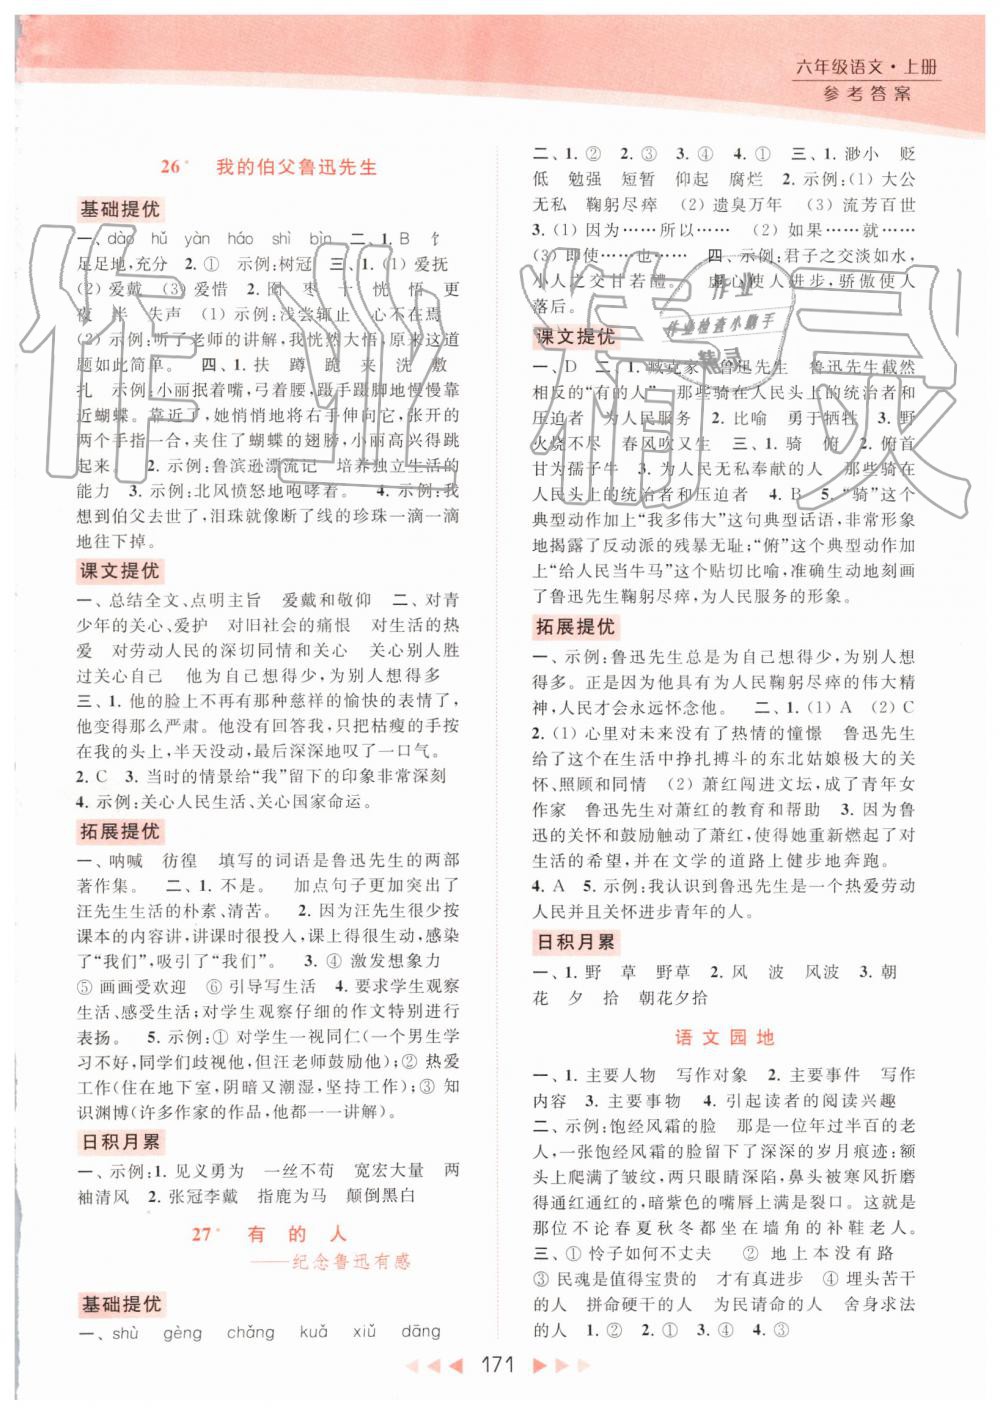 六年级语文·上册
参考答案
26* 我的伯父鲁迅先生
基础提优
一、dào hǔ yàn háo shì bìn 二、1. B 饣
足足地,充分 2. ① 示例:树冠 三、1. (1) 爱抚
(2) 爱戴 (3) 爱惜 2. 囫 枣 十 恍 悟 更
夜 半 失声 (1) 示例:浅尝辄止 心不在焉
(2) 示例:听了老师的讲解,我恍然大悟,原来这道
题如此简单。 四、1. 扶 蹲 跪 夹 洗 敷
扎 示例:小丽抿着嘴,弓着腰,蹑手蹑脚地慢慢靠
近蝴蝶。靠近了,她悄悄地将右手伸向它,张开的
两个手指一合,夹住了蝴蝶的翅膀,小丽高兴得跳
起来。 2. 示例:鲁滨逊漂流记 培养独立生活的
能力 3. 示例:北风愤怒地咆哮着。 4. 示例:我
想到伯父去世了,泪珠就像断了线的珍珠一滴一滴
地往下掉。
课文提优
一、总结全文、点明主旨 爱戴和敬仰 二、对青
少年的关心、爱护 对旧社会的痛恨 对生活的热
爱 对劳动人民的深切同情和关心 关心别人胜
过关心自己 他为自己想得少,为别人想得多
三、1. 他的脸上不再有那种慈祥的愉快的表情了,
他变得那么严肃。他没有回答我,只把枯瘦的手按
在我的头上,半天没动,最后深深地叹了一口气。
2. C 3. 当时的情景给“我”留下的印象非常深刻
4. 示例:关心人民生活、关心国家命运。
拓展提优
一、呐喊 彷徨 填写的词语是鲁迅先生的两部
著作集。 二、1. 不是。 加点句子更加突出了
汪先生生活的朴素、清苦。 2. 因为汪先生很少按
课本的内容讲,讲课时很投入,课上得很生动,感染
了“我们”,吸引了“我们”。 3. ④ 激发想象力
⑤ 画画受欢迎 ⑥ 引导写生活 4. 要求学生观察
生活、感受生活;对学生观察仔细的作文特别进行
表扬。 5. 示例:① 对学生一视同仁(一个男生学
习不好,同学们歧视他,但汪老师鼓励他);② 热爱
工作(住在地下室,阴暗又潮湿,坚持工作);③ 知
识渊博(许多作家的作品,他都一一讲解)。
日积月累
一、示例:1. 见义勇为 一丝不苟 宽宏大量 两
袖清风 2. 张冠李戴 指鹿为马 颠倒黑白
27* 有的人
——纪念鲁迅有感
基础提优
一、shù gèng chǎng kuǎ xiǔ dāng
二、1. ② 2. ③ 3. ④ 4. ① 三、1. 渺小 贬
低 勉强 短暂 仰起 腐烂 2. 示例:(1) 大公
无私 鞠躬尽瘁 (2) 遗臭万年 (3) 流芳百世
3. (1) 因为……所以…… (2) 如果……就……
(3) 即使…也… 四、示例:君子之交淡如水,
小人之交甘若醴。 虚心使人进步,骄傲使人
落后。
课文提优
一、D 二、1. 臧克家 鲁迅先生 鲁迅先生截然
相反的“有的人” 那些骑在人民头上的统治者和
压迫者 为人民服务 2. 比喻 勇于牺牲 3. 野
火烧不尽 春风吹又生 三、1. 骑 俯 2. 俯首
甘为孺子牛 3. 为人民无私奉献的人 那些骑在
人民头上的统治者和压迫者 4. B 5. “骑”这个
典型动作加上“我多伟大”这句典型话语,非常形象
地揭露了反动派的残暴无耻;“俯”这个典型动作加
上“给人民当牛马”这个贴切比喻,准确生动地刻画
了鲁迅先生鞠躬尽瘁,为人民服务的形象。
拓展提优
一、示例:鲁迅先生总是为自己想得少,为别人想
得多。正是因为他具有为人民鞠躬尽瘁的伟大精
神,人民才会永远怀念他。 二、1. (1) A (2) C
2. (1) 心里对未来没有了热情的憧憬 鲁迅先生
给了这个在生活中挣扎搏斗的东北姑娘极大的关
怀、照顾和同情 (2) 萧红闯进文坛,成了青年女
作家 鲁迅先生对萧红的教育和帮助 3. 因为鲁
迅的关怀和鼓励触动了萧红,使得她重新燃起了对
生活的希望,并在文学的道路上健步地奔跑。
4. A 5. 示例:我认识到鲁迅先生是一个热爱劳动
人民并且关怀进步青年的人。
日积月累
一、1. 野 草 野草 2. 风 波 风波 3. 朝
花 夕 拾 朝花夕拾
语文园地
一、1. 主要人物 写作对象 2. 主要事件 写作
内容 3. 主要事物 4. 引起读者的阅读兴趣
二、示例:饱经风霜的脸 那是一位年过半百的老
人,一张饱经风霜的脸留下了深深的岁月痕迹:额
头上爬满了皱纹,两只眼睛深陷,鼻头被寒风折磨
得通红通红的,暗紫色的嘴唇上满是裂口。这就是
那位不论春夏秋冬都坐在墙角的补鞋老人。
三、① 怜子如何不丈夫 ② 地上本没有路
③ 民魂是值得宝贵的 才有真进步 ④ 埋头苦干
的人 拼命硬干的人 为民请命的人 舍身求法
的人 1. ② 2. ① 3. ④ 4. ③
171
作业精灵
作业
作业检查小助手
精灵